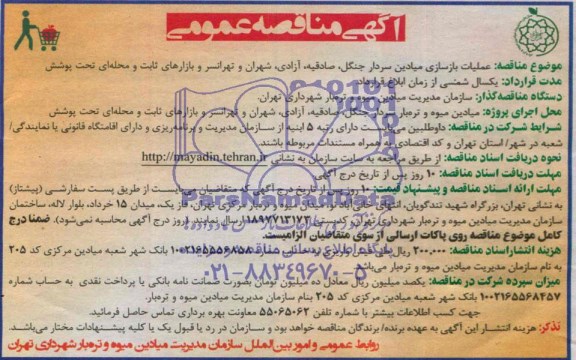 آگهی مناقصه عمومی
موضوع مناقصه: عملیات بازسازی میادین سردار جنگل، صادقیه، آزادی، شهران و تهرانسر و بازارهای ثابت و محله‌ای تحت پوشش
مدت قرارداد: یکسال شمسی از زمان ابلاغ قرارداد
دستگاه مناقصه‌گذار: سازمان مدیریت میادین میوه و تره‌بار شهرداری تهران.
محل اجرای پروژه: میادین میوه و تره‌بار سردار جنگل، صادقیه، آزادی، شهران و تهرانسر و بازارهای ثابت و محله‌ای تحت پوشش
شرایط شرکت در مناقصه: داوطلبین می‌بایست دارای رتبه ۵ ابنیه از سازمان مدیریت و برنامه‌ریزی و دارای اقامتگاه قانونی یا نمایندگی/
شعبه در شهر/ استان تهران و کد اقتصادی به همراه مستندات مربوطه باشند.
نحوه دریافت اسناد مناقصه: از طریق مراجعه به سایت سازمان به نشانی http://mayadin.tehran.ir
مهلت دریافت اسناد مناقصه: ۱۰ روز پس از تاریخ درج آگهی
مهلت ارائه اسناد مناقصه و پیشنهاد قیمت: ۱۰ روز پس از تاریخ درج آگهی که متقاضیان می‌بایست از طریق پست سفارشی (پیشتاز)
به نشانی تهران، بزرگراه شهید تندگویان، انتهای میدان ۱۵ خرداد، بلوار لاله، ساختمان
سازمان مدیریت میادین میوه و تره‌بار شهرداری تهران کدپستی ۱۸۹۷۷۱۳۱۷۳ ارسال نمایند. (روز درج آگهی محاسبه نمی‌شود). ضمنا درج
کامل موضوع مناقصه روی پاکات ارسالی از سوی متقاضیان الزامیست.
هزینه انتشار اسناد مناقصه: ۲۰۰،۰۰۰ ریال طی فیش واریزی به حساب شماره ۱۰۰۲۱۶۵۵۵۶۸۵۸ بانک شهر شعبه میادین مرکزی کد ۲۰۵
به نام سازمان مدیریت میادین میوه و تره‌بار می‌باشد.
میزان سپرده شرکت در مناقصه: یکصد میلیون ریال معادل ده میلیون تومان بصورت ضمانت نامه بانکی یا پرداخت نقدی به حساب شماره
۱۰۰۲۱۶۵۵۶۸۴۵۷ بانک شهر شعبه میادین مرکزی کد ۲۰۵ بنام سازمان مدیریت میادین میوه و تره‌بار.
جهت کسب اطلاعات بیشتر با شماره تلفن ۵۵۰۶۵۰۶۲ معاونت بهره برداری تماس حاصل فرمائید.
تذکر: هزینه انتشار این آگهی به عهده برنده/ برندگان مناقصه خواهد بود و سازمان در رد یا قبول یک یا کلیه پیشنهادات مختار می‌باشد.
روابط عمومی و امور بین‌الملل سازمان مدیریت میادین میوه و تره‌بار شهرداری تهران
ParsNamadData
۰۲۱-۸۸۳۴۹۶۷۰-۵